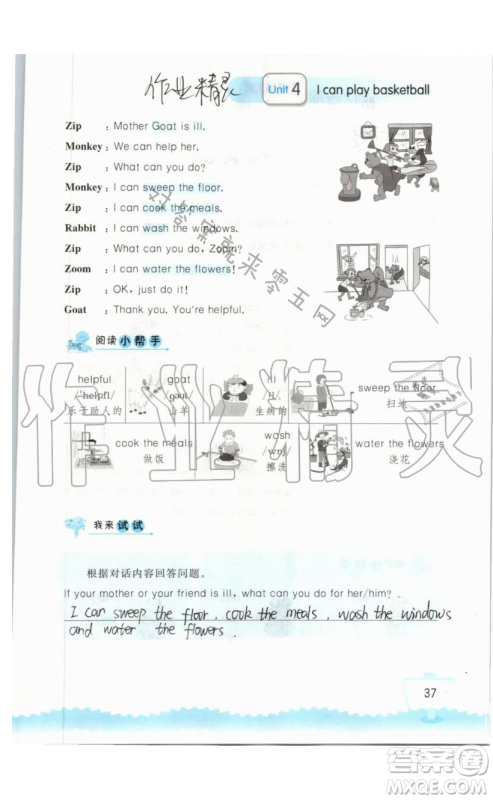 作业精灵
Unit 4 I can play basketball
Zip : Mother Goat is ill.
Monkey : We can help her.
Zip : What can you do?
Monkey : I can sweep the floor.
Zip : I can cook the meals.
Rabbit : I can wash the windows.
Zip : What can you do, Zoom?
Zoom : I can water the flowers!
Zip : OK, just do it!
Goat : Thank you. You're helpful.
对答案就来零五网
阅读小帮手
helpful goat ill sweep the floor
/'helpfl/ /gəʊt/ /ɪl/ 扫地
乐于助人的 山羊 生病的
cook the meals wash water the flowers
做饭 /wɒʃ/ 浇花
擦洗
作业精灵
我来试试
根据对话内容回答问题。
If your mother or your friend is ill, what can you do for her/him?
I can sweep the floor, cook the meals, wash the windows
and water the flowers.
37
答案圈
MXQE.COM